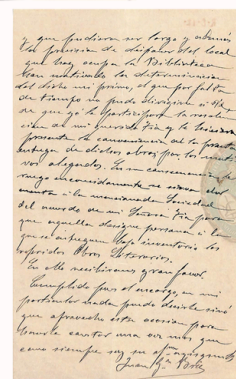 y que pudieran ser largo y además
la precisión de disponer del local
que hoy ocupa la Biblioteca
han motivado la determinación
del dicho mi primo, el que por falta
de tiempo no pudo dirigirse a V.
de que yo le participara la resolu
ción de mi querida tía y le hiciera
presente la conveniencia de la pronta
entrega de dichas obras por los moti
vos alegados. En su consecuencia
ruego encarecidamente se sirva dar
cuenta a la mencionada Sociedad
del acuerdo de mi Señora tía para
que aquella designe persona a la
que se entreguen bajo inventario los
referidos libros literarios.
En ello recibiremos gran favor.
Cumplido pues el encargo, en mi
particular nada puedo decirle sinó
que aprovecho esta ocasión para
hacerle constar una vez más que
como siempre soy su afmo
Juan